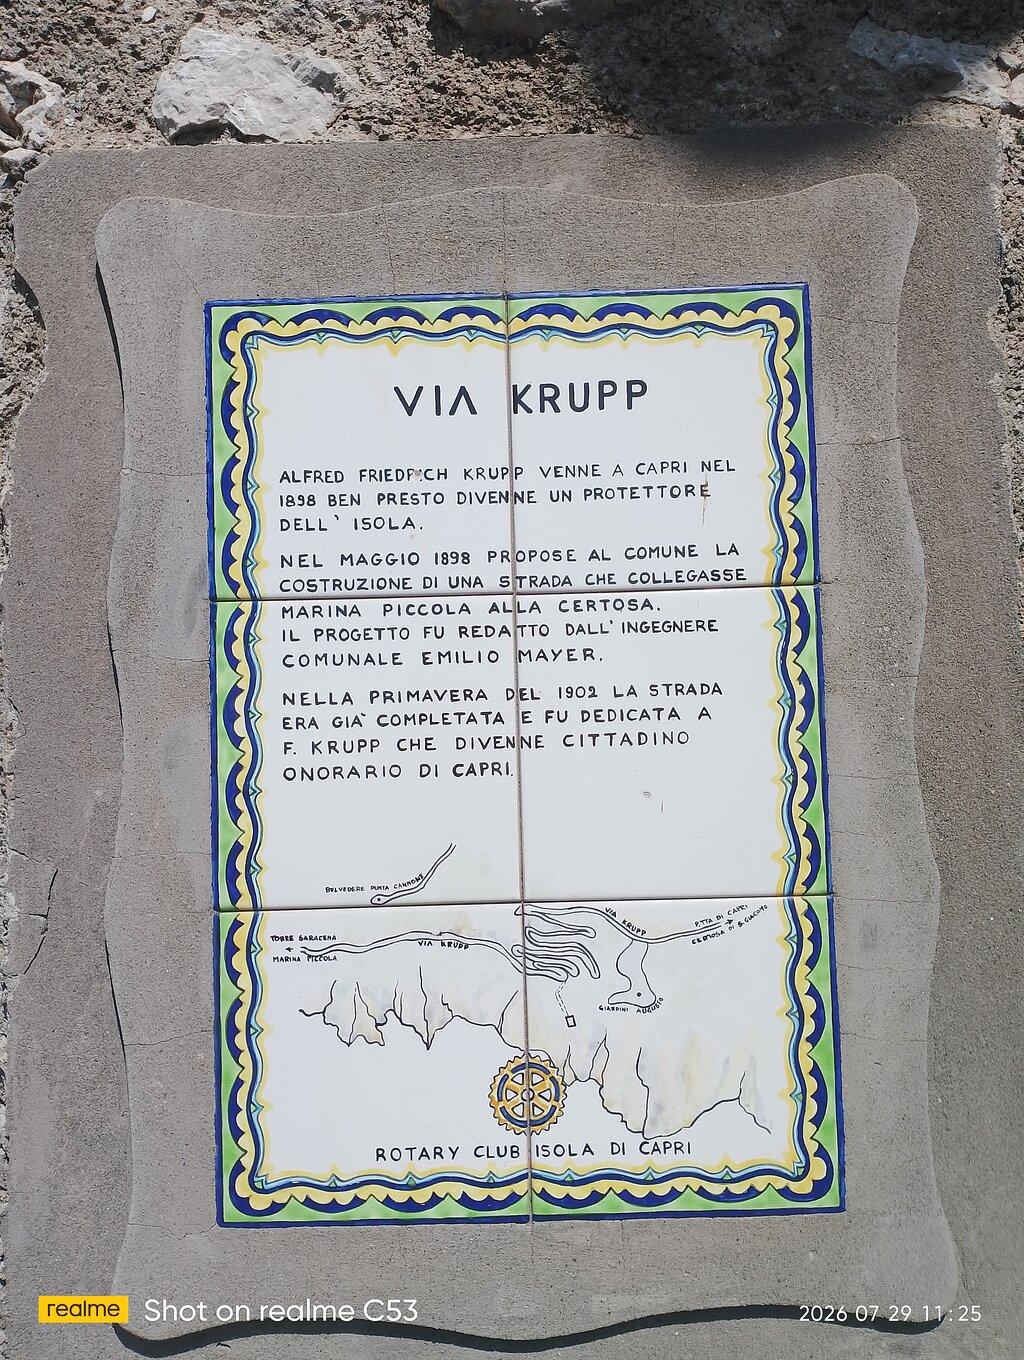 VIA KRUPP
ALFRED FRIEDRICH KRUPP VENNE A CAPRI NEL
1898 BEN PRESTO DIVENNE UN PROTETTORE
DELL' ISOLA.
NEL MAGGIO 1898 PROPOSE AL COMUNE LA
COSTRUZIONE DI UNA STRADA CHE COLLEGASSE
MARINA PICCOLA ALLA CERTOSA.
IL PROGETTO FU REDATTO DALL'INGEGNERE
COMUNALE EMILIO MAYER.
NELLA PRIMAVERA DEL 1902 LA STRADA
ERA GIA` COMPLETATA E FU DEDICATA A
F. KRUPP CHE DIVENNE CITTADINO
ONORARIO DI CAPRI.
BELVEDERE PUNTA CANNONE
VIA KRUPP
P.TTA DI CAPRI
CERTOSA DI S. GIACOMO
TORRE SARACENA
MARINA PICCOLA
VIA KRUPP
GIARDINI AUGUSTO
ROTARY CLUB ISOLA DI CAPRI
realme Shot on realme C53
2026 07 29 11:25